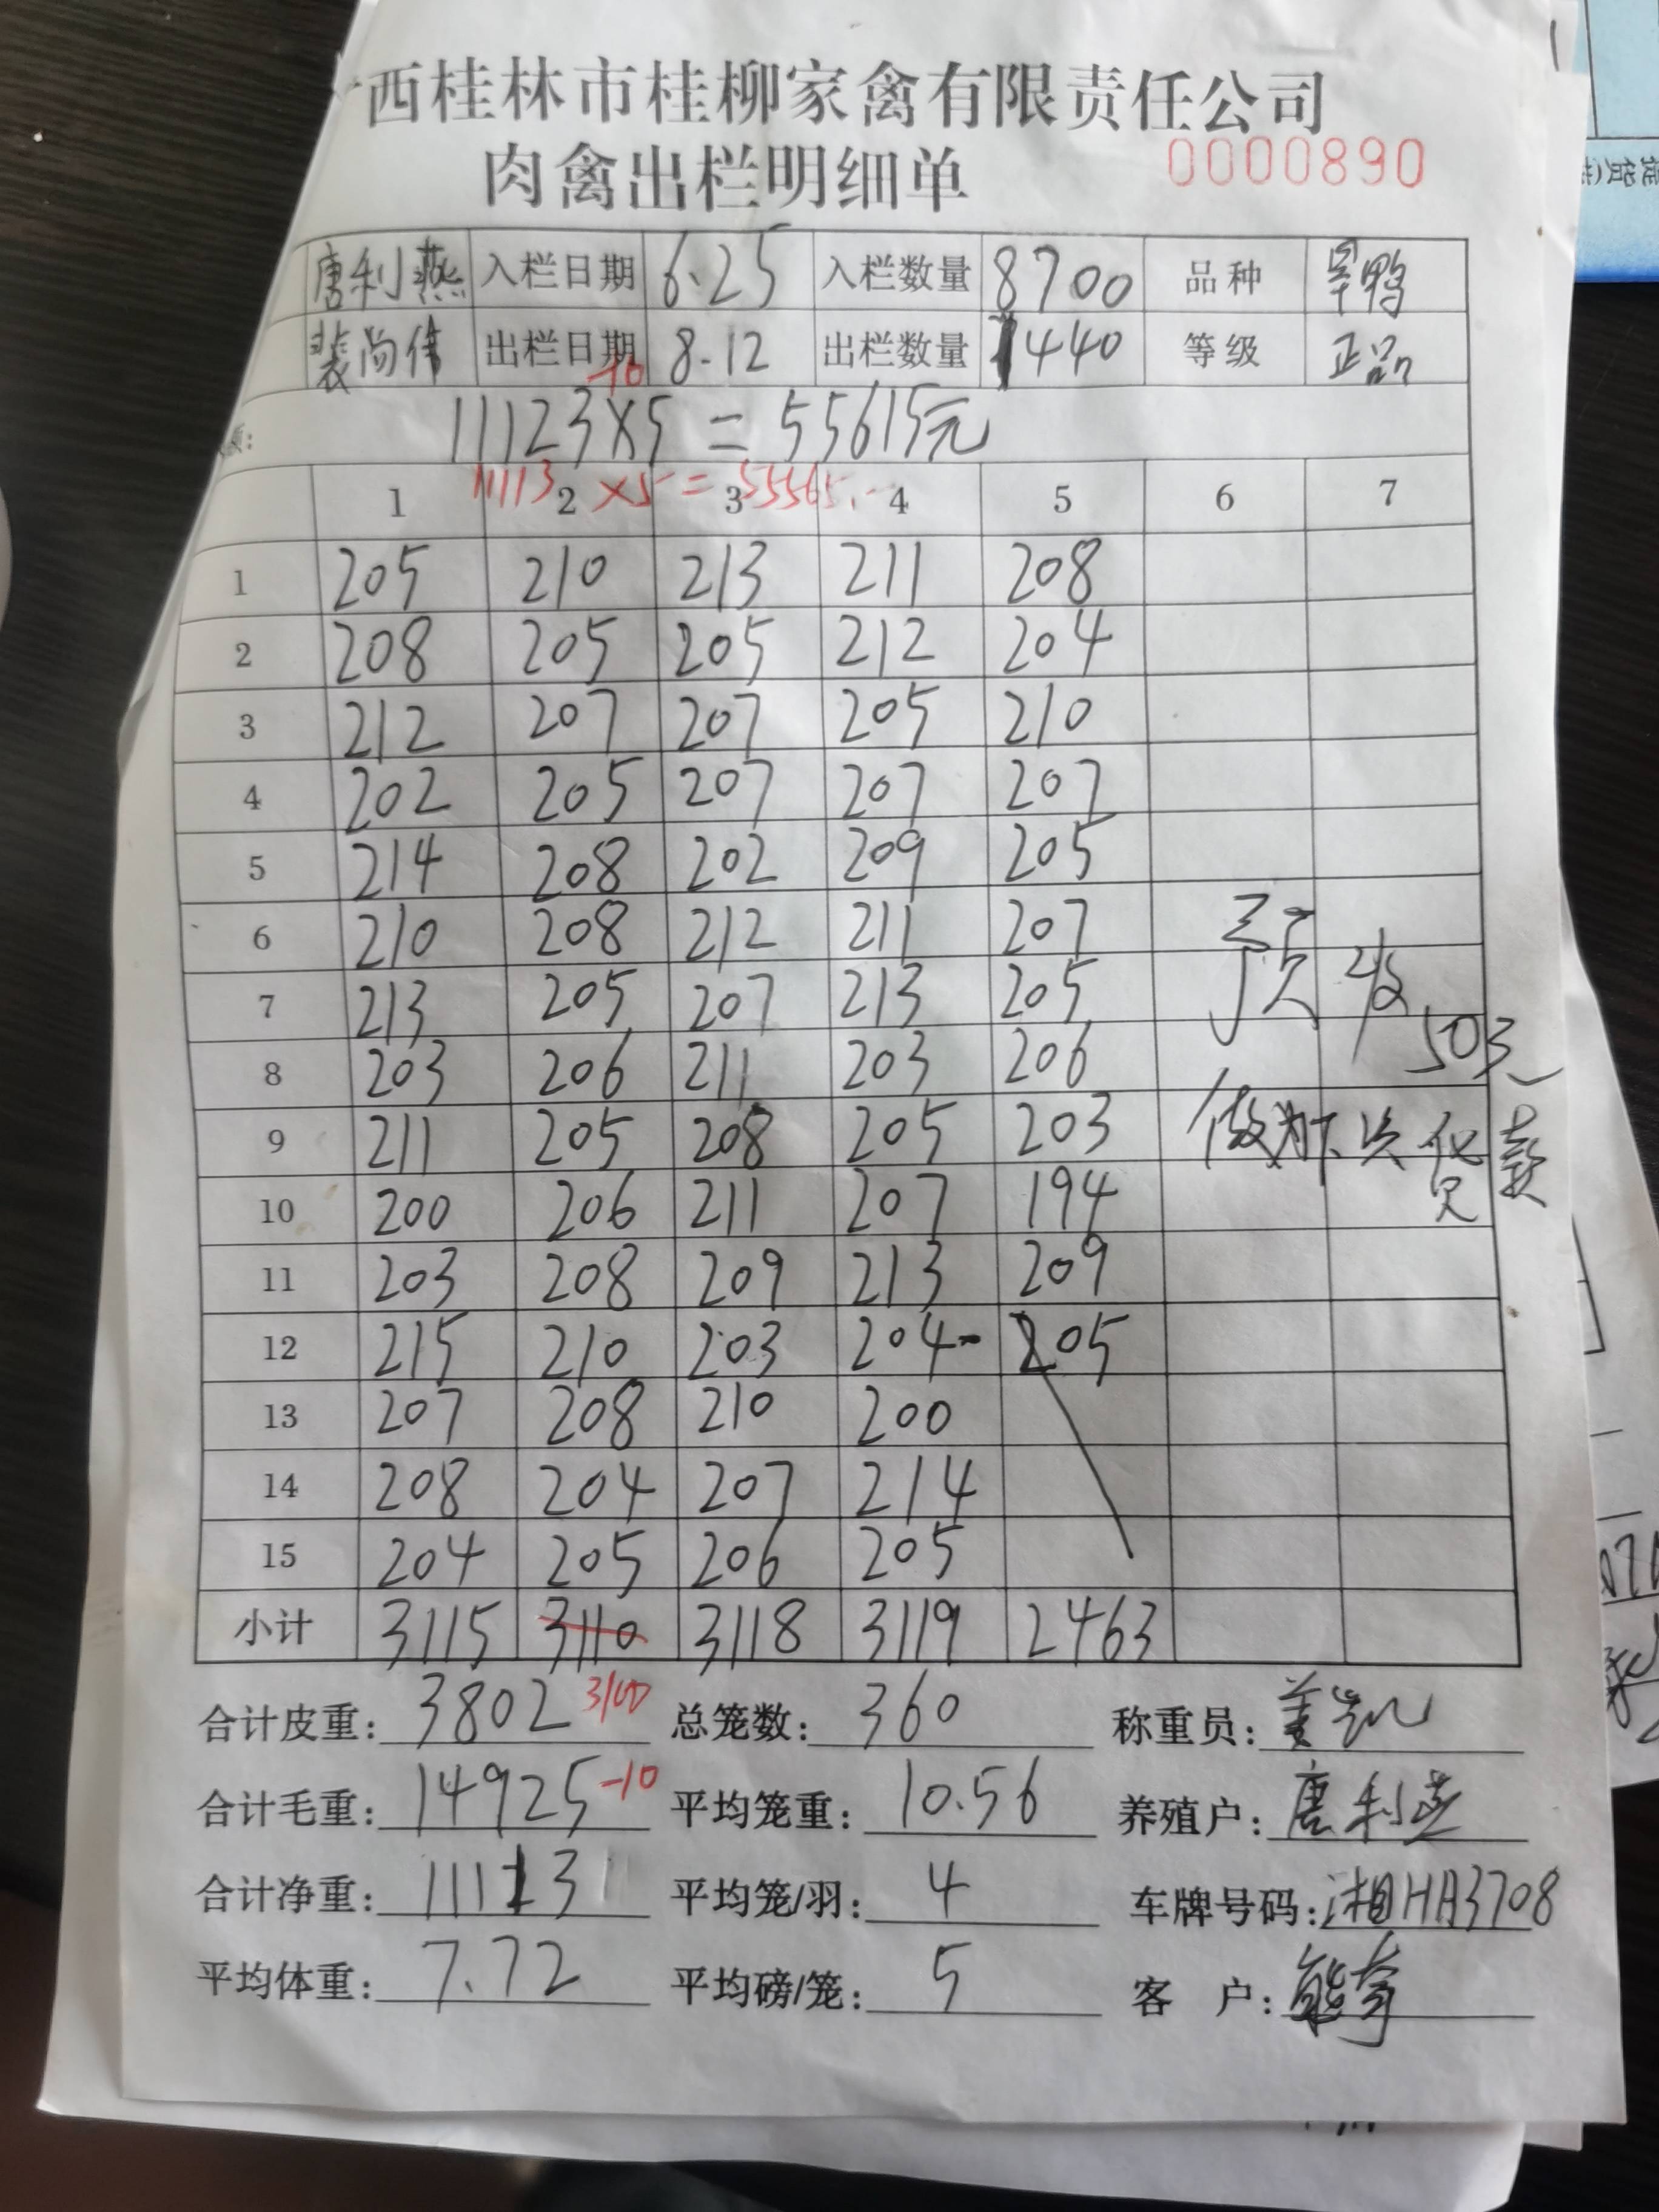 西桂林市桂柳家禽有限责任公司
肉禽出栏明细单 0000890
唐利燕 入栏日期 6.25 入栏数量 8700 品种 旱鸭
裴尚伟 出栏日期 8.12 出栏数量 1440 等级 正品
-10
11123×5=55615元
11113×5=55565.-
1 2 3 4 5 6 7
1 205 210 213 211 208
2 208 205 205 212 204
3 212 207 207 205 210
4 202 205 207 207 207
5 214 208 202 209 205
6 210 208 212 211 207
7 213 205 207 213 205
预收
8 203 206 211 203 206
50元
9 211 205 208 205 203
做为下次货款
10 200 206 211 207 194
11 203 208 209 213 209
12 215 210 203 204- 205
13 207 208 210 200
14 208 204 207 214
15 204 205 206 205
小计 3115 3110 3118 3119 2463
合计皮重: 3802 3100 总笼数: 360 称重员:
合计毛重: 14925-10 平均笼重: 10.56 养殖户: 唐利燕
合计净重: 11113 平均笼/羽: 4 车牌号码: 湘HA3708
平均体重: 7.72 平均磅/笼: 5 客 户: